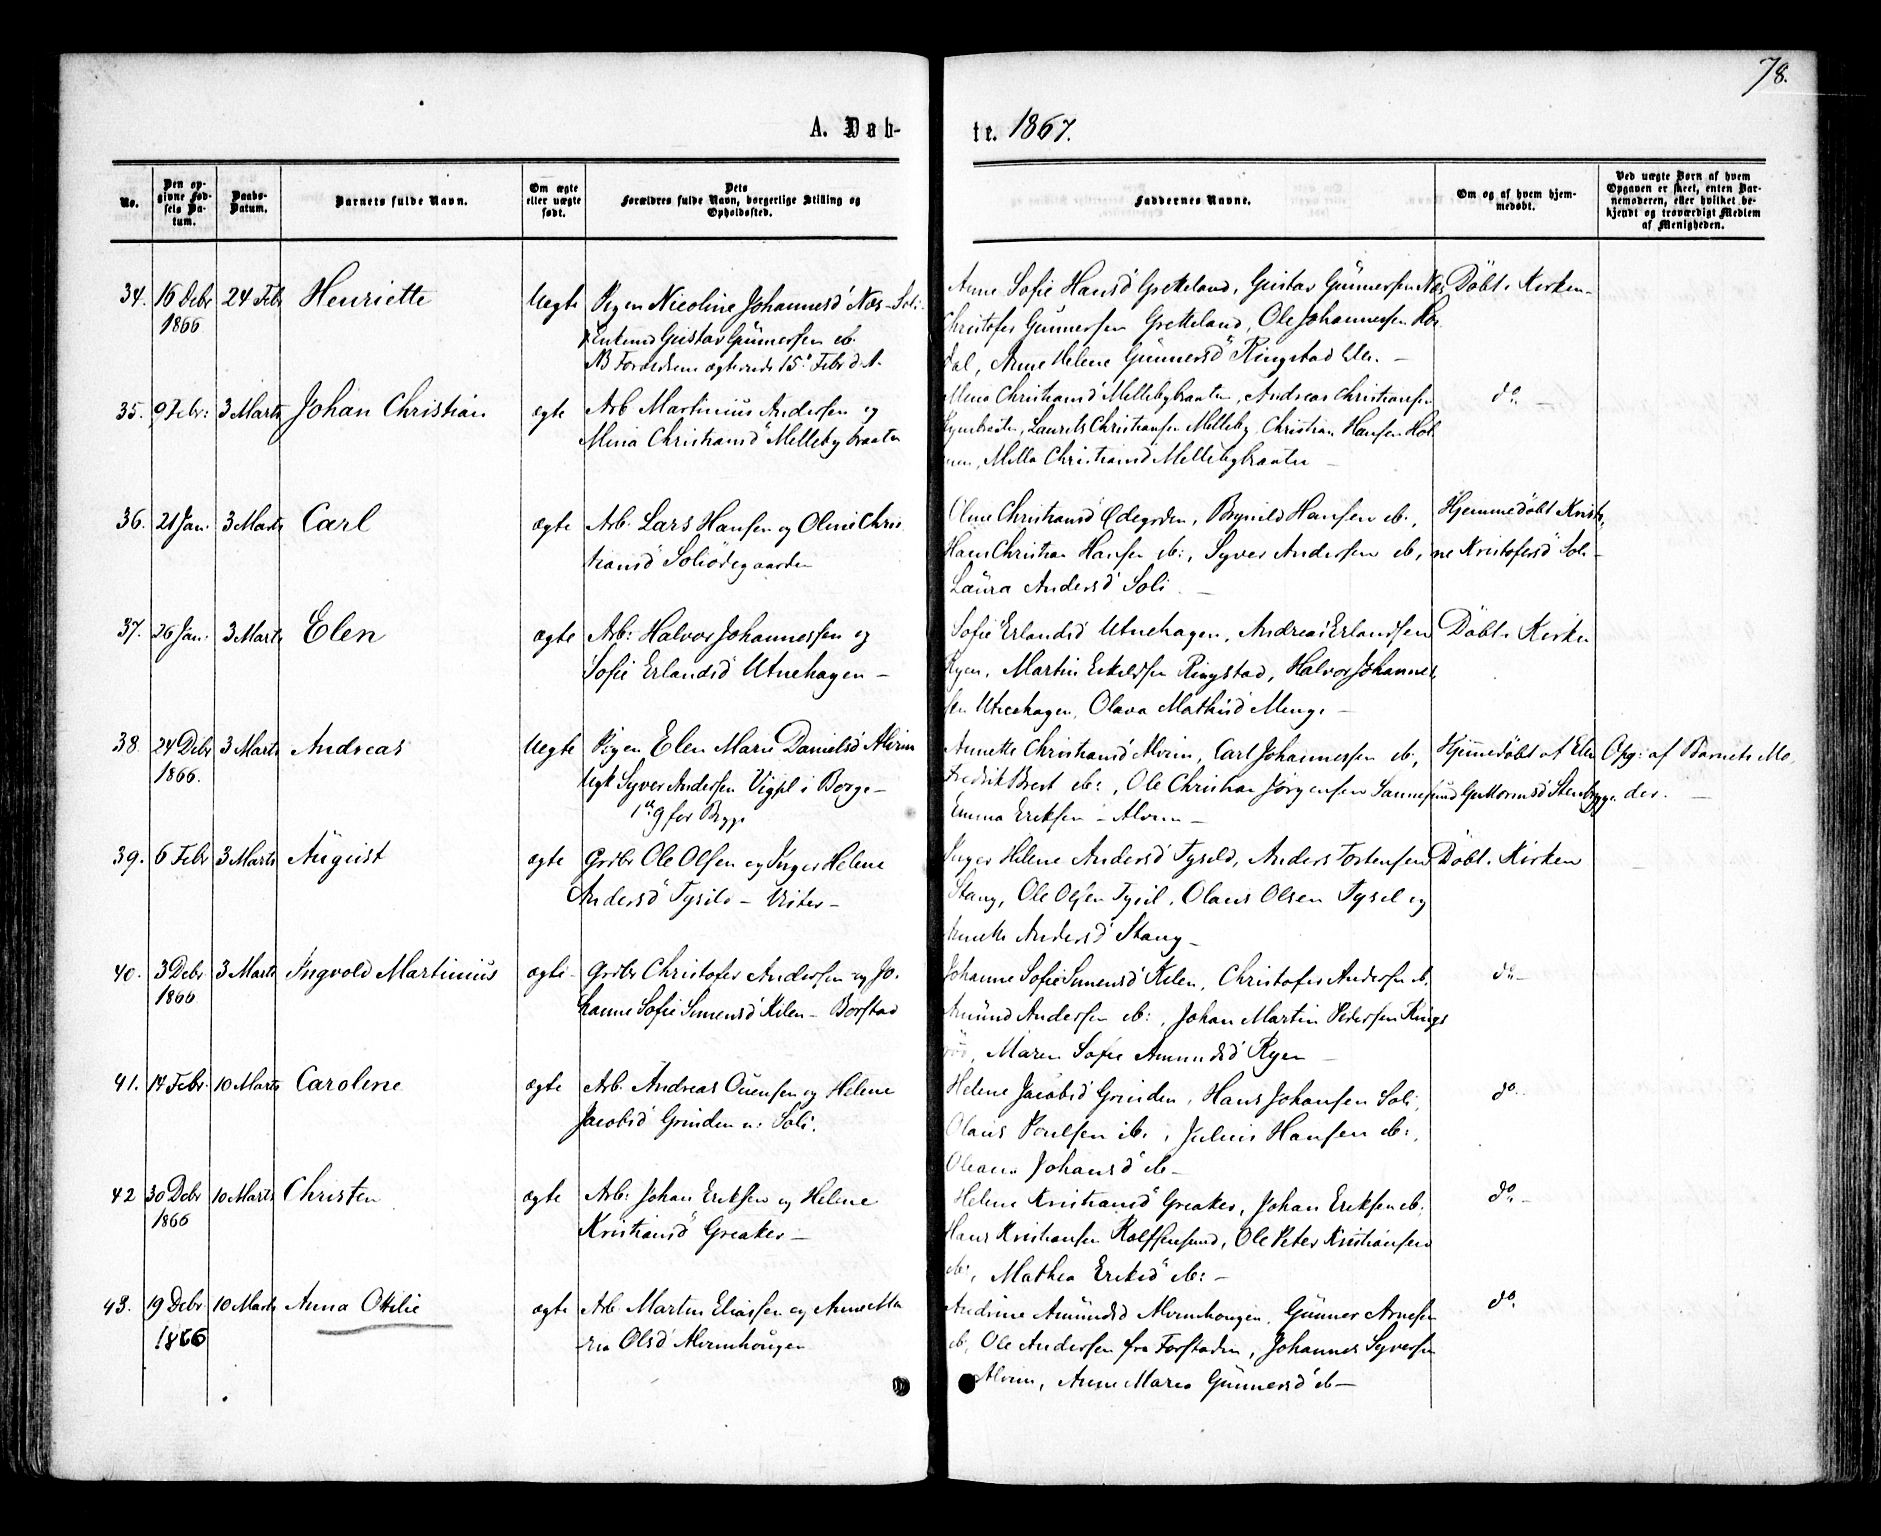 78.
A. Døb-
te. 1867.
No.
Den opgivne Fødsels Datum.
Daabs-Datum.
Barnets fulde Navn.
Om ægte eller uægte født.
Dets Forældres fulde Navn, borgerlige Stilling og Opholdssted.
Faddernes Navne.
Om og af hvem hjemmedøbt.
Ved uægte Børn af hvem Opgaven er skeet, enten Barnemoderen, eller hvilket bekjendt og troværdigt Medlem af Menigheden.
34. 16 Debr 24 Feb Henriette Uegte Pigen Nicoline Johannesd Næs - Soli
1866 Gustav Gunnersen eb.
NB Forældrene ægteviede 15. Febr d. A.
Anne Sofie Hansd Gretteland, Gustav Gunnersen Næs
Christofer Gunnersen Gretteland, Ole Johannesen
dal, Anne Helene Gunnersd Ringstad
Döbt i Kirken
35. 9 Febr: 3 Marts Johan Christian ægte Arb Martinius Andersen og
Mina Christiansd Mellebybraaten
Mina Christiansd Mellebybraaten, Andreas Christiansen
Laurits Christiansen Melleby, Christian Hansen Hol
Milla Christiansd Mellebybraaten
do
36. 21 Jan. 3 Marts Carl ægte Arb. Lars Hansen og Oline Chris
tiansd Soliödegaarden
Oline Christiansd Ødegrden, Brynild Hansen eb.,
Hans Christian Hansen eb:, Syver Andersen eb,
Laura Andersd Soli -
Hjemmedöbt Kristi
ne Kristofersd Soli -
37. 26 Jan. 3 Marts Elen ægte Arb: Halvor Johannessen og
Sofie Erlandsd Utnehagen -
Sofie Erlandsd Utnehagen, Andreas Erlandsen
Ryen, Martin Eskildsen Ringstad, Halvor Johannes
sen Utnehagen, Olava Mathisd Menge -
Döbt i Kirken
38. 24 Debr 3 Marts Andreas Uegte Pigen Elen Marie Danielsd Alvim
1866. Ugk Syver Andersen i Borge -
1ste g for Begge
Annette Christiansd Alvim, Carl Johannessen eb,
Fredrik Brest eb:, Ole Christian Jörgensen Sannesund
Emma Eriksen - Alvim -
Hjemmedöbt af Elen
Guttormsd Stenbrygge
Opg: af Barnets Mo,
der. -
39. 6 Febr 3 Marts August ægte Grdbr Ole Olsen og Inger Helene
Andersd Tysild - Vister -
Inger Helene Andersd Tysild, Anders Torstensen
Stang, Ole Olsen Tysil, Olaus Olsen Tysil og
Annette Andersd Stang -
Döbt i Kirken
40. 3 Debr 3 Marts Ingvold Martinius ægte Grdbr Christofer Andersen og Jo,
1866 hanne Sofie Simensd Kilen - Borstad
Johanne Sofie Simensd Kilen, Christofer Andersen eb.
Amund Andersen eb:, Johan Martin Pedersen Rings
rör, Maren Sofie Amundsd Ryen -
do -
41. 14 Febr. 10 Marts Caroline ægte Arb. Andreas Ouensen og Helene
Jacobsd Grinden u: Soli.
Helene Jacobsd Grinden, Hans Johansen Soli,
Olaus Poulsen eb., Julius Hansen eb:,
Oleana Johansd eb -
do
42 30 Debr 10 Marts Christen ægte Arb: Johan Eriksen og Helene
1866 Kristiansd Greaker -
Helene Kristiansd Greaker, Johan Eriksen eb.
Hans Kristiansen Rolfsensund, Ole Peter Kristiansen
eb:, Mathea Eriksd eb: -
do -
43. 19 Debr 10 Marts Anna Otilie ægte Arb Martin Eliassen og Anne Ma
1866 ria Olsd Alvimhougen
Andrine Amundsd Alvimhougen, Gunner Arnesen
eb, Ole Andersen fra Forstaden, Johannes Syversen
Alvim, Anne Maria Gunnersd eb -
do